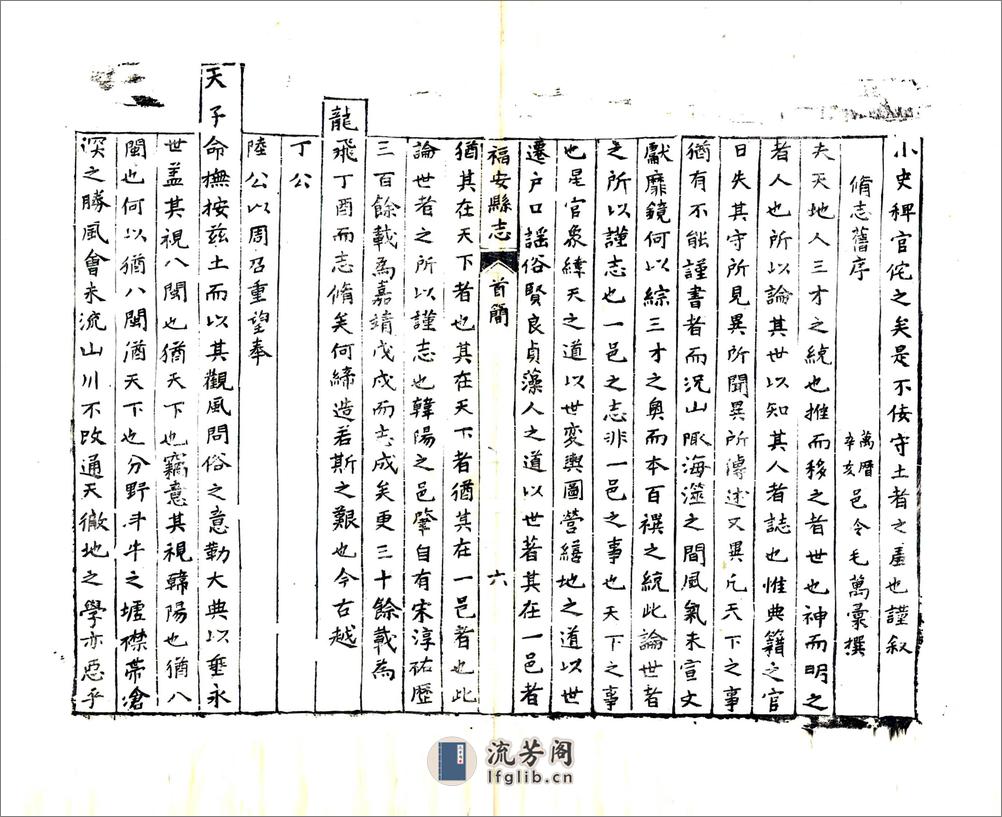 小史稗官侘之矣是不佞守土者之羞也謹叙
脩志舊序
萬曆辛亥邑令毛萬彙撰
夫天地人三才之統也推而移之者世也神而明之
者人也所以論其世以知其人者誌也惟典籍之官
日失其守所見異所聞異所傳述又異凡天下之事
猶有不能謹書者而況山陬海澨之間風氣未宣文
獻靡鏡何以綜三才之奥而本百禩之統此論世者
之所以謹志也一邑之志非一邑之事也天下之事
也星官衆緯天之道以世变輿圖營繕地之道以世
遷户口謡俗賢良貞藻人之道以世著其在一邑者
福安縣志 首簡 六
猶其在天下者也其在天下者猶其在一邑者也此
論世者之所以謹志也韓陽之邑肇自有宋淳祐歷
三百餘載為嘉靖戊戌而志成矣更三十餘載為
龍飛丁酉而志脩矣何締造若斯之艱也今古越
丁公
陸公以周召重望奉
天子命撫按兹土而以其觀風問俗之意勒大典以垂永
世盖其視八閩也猶天下也竊意其視韓陽也猶八
閩也何以猶八閩酒天下也分野斗牛之墟襟帶滄
溟之勝風會未流山川不改通天徹地之學亦惡乎
流芳阁
lfglib.cn